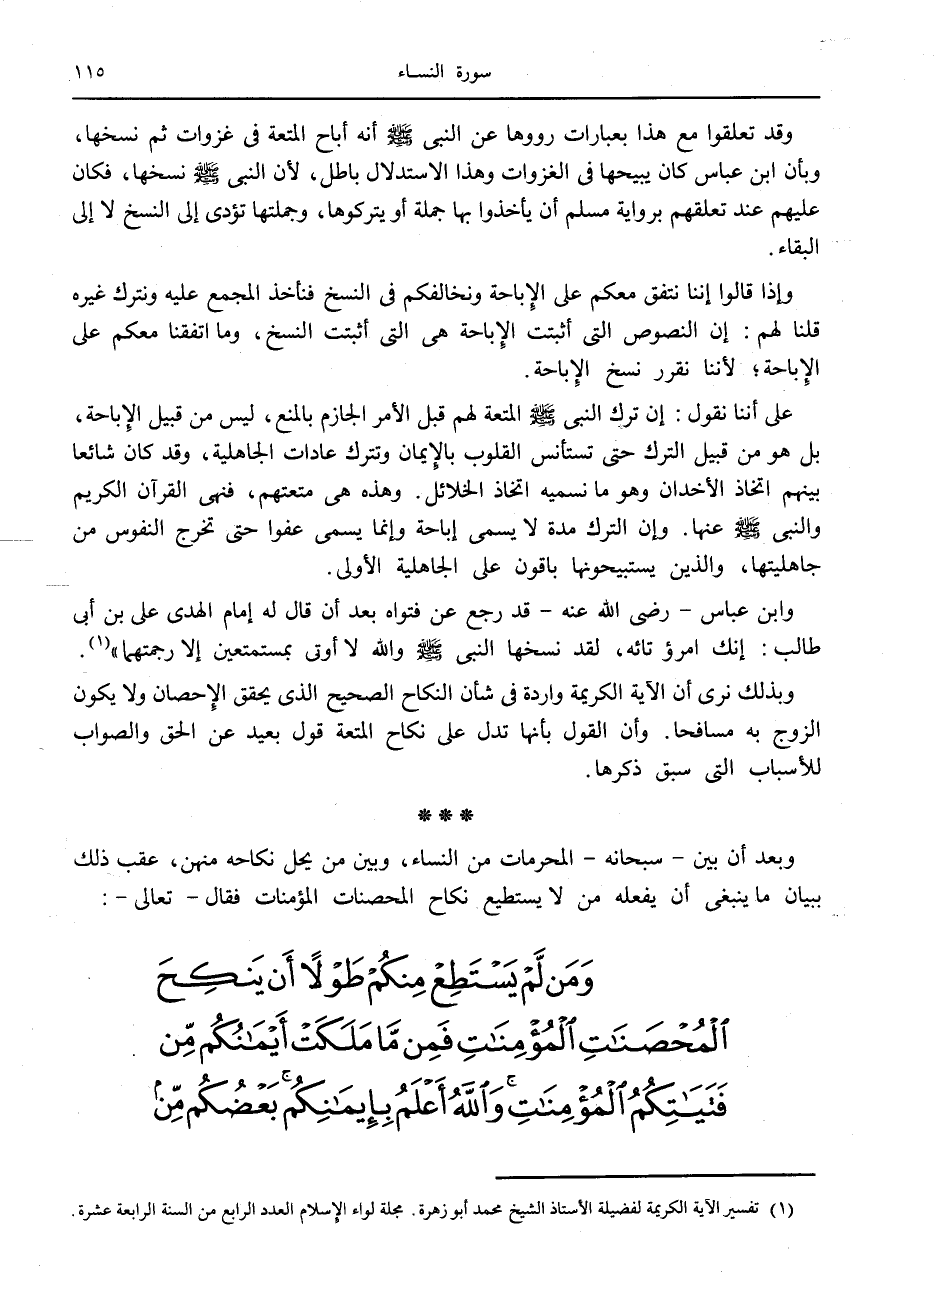 سورة النساء ١١٥
وقد تعلقوا مع هذا بعبارات رووها عن النبى ﷺ أنه أباح المتعة فى غزوات ثم نسخها،
وبأن ابن عباس كان يبيحها فى الغزوات وهذا الاستدلال باطل، لأن النبى ﷺ نسخها، فكان
عليهم عند تعلقهم برواية مسلم أن يأخذوا بها جملة أو يتركوها، وجملتها تؤدى إلى النسخ لا إلى
البقاء.
وإذا قالوا إننا نتفق معكم على الإباحة ونخالفكم فى النسخ فنأخذ المجمع عليه ونترك غيره
قلنا لهم : إن النصوص التى أثبتت الإباحة هى التى أثبتت النسخ، وما اتفقنا معكم على
الإباحة؛ لأننا نقرر نسخ الإباحة.
على أننا نقول : إن ترك النبى ﷺ المتعة لهم قبل الأمر الجازم بالمنع، ليس من قبيل الإباحة،
بل هو من قبيل الترك حتى تستأنس القلوب بالإيمان وتترك عادات الجاهلية، وقد كان شائعا
بينهم اتخاذ الأخدان وهو ما نسميه اتخاذ الخلائل. وهذه هى متعتهم، فنهى القرآن الكريم
والنبى ﷺ عنها. وإن الترك مدة لا يسمى إباحة وإنما يسمى عفوا حتى تخرج النفوس من
جاهليتها، والذين يستبيحونها باقون على الجاهلية الأولى.
وابن عباس - رضى الله عنه - قد رجع عن فتواه بعد أن قال له إمام الهدى على بن أبى
طالب : إنك امرؤ تائه، لقد نسخها النبى ﷺ والله لا أوتى بمستمتعين إلا رجمتهما»(١).
وبذلك نرى أن الآية الكريمة واردة فى شأن النكاح الصحيح الذى يحقق الإحصان ولا يكون
الزوج به مسافحا. وأن القول بأنها تدل على نكاح المتعة قول بعيد عن الحق والصواب
للأسباب التى سبق ذكرها.
* * *
وبعد أن بين - سبحانه - المحرمات من النساء، وبين من يحل نكاحه منهن، عقب ذلك
ببيان ما ينبغى أن يفعله من لا يستطيع نكاح المحصنات المؤمنات فقال - تعالى - :
وَمَن لَّمْ يَسْتَطِعْ مِنكُمْ طَوْلًا أَن يَنكِحَ
ٱلْمُحْصَنَٰتِ ٱلْمُؤْمِنَٰتِ فَمِن مَّا مَلَكَتْ أَيْمَٰنُكُم مِّن
فَتَيَٰتِكُمُ ٱلْمُؤْمِنَٰتِ ۚ وَٱللَّهُ أَعْلَمُ بِإِيمَٰنِكُم ۚ بَعْضُكُم مِّنۢ
(١) تفسير الآية الكريمة لفضيلة الأستاذ الشيخ محمد أبو زهرة. مجلة لواء الإسلام العدد الرابع من السنة الرابعة عشرة.